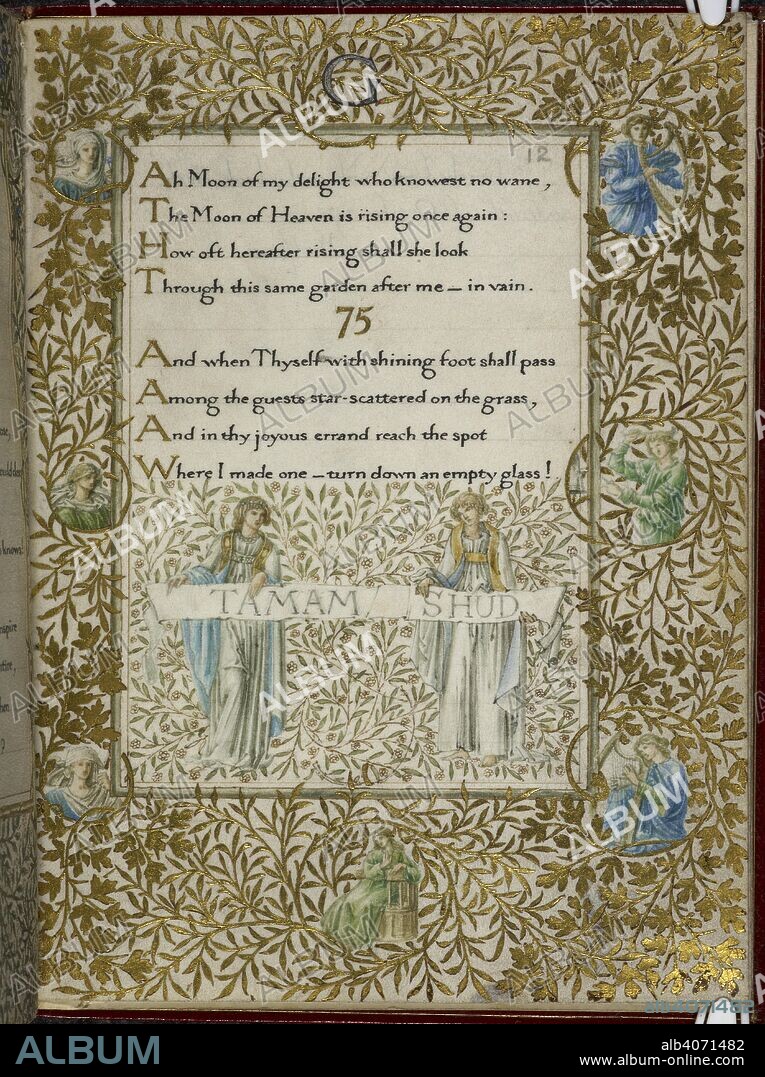 G
12
Ah Moon of my delight who knowest no wane,
The Moon of Heaven is rising once again:
How oft hereafter rising shall she look
Through this same garden after me — in vain.
75
And when Thyself with shining foot shall pass
Among the guests star-scattered on the grass,
And in thy joyous errand reach the spot
Where I made one — turn down an empty glass!
TAMAM SHUD
ALBUM
alb4071482
www.album-online.com